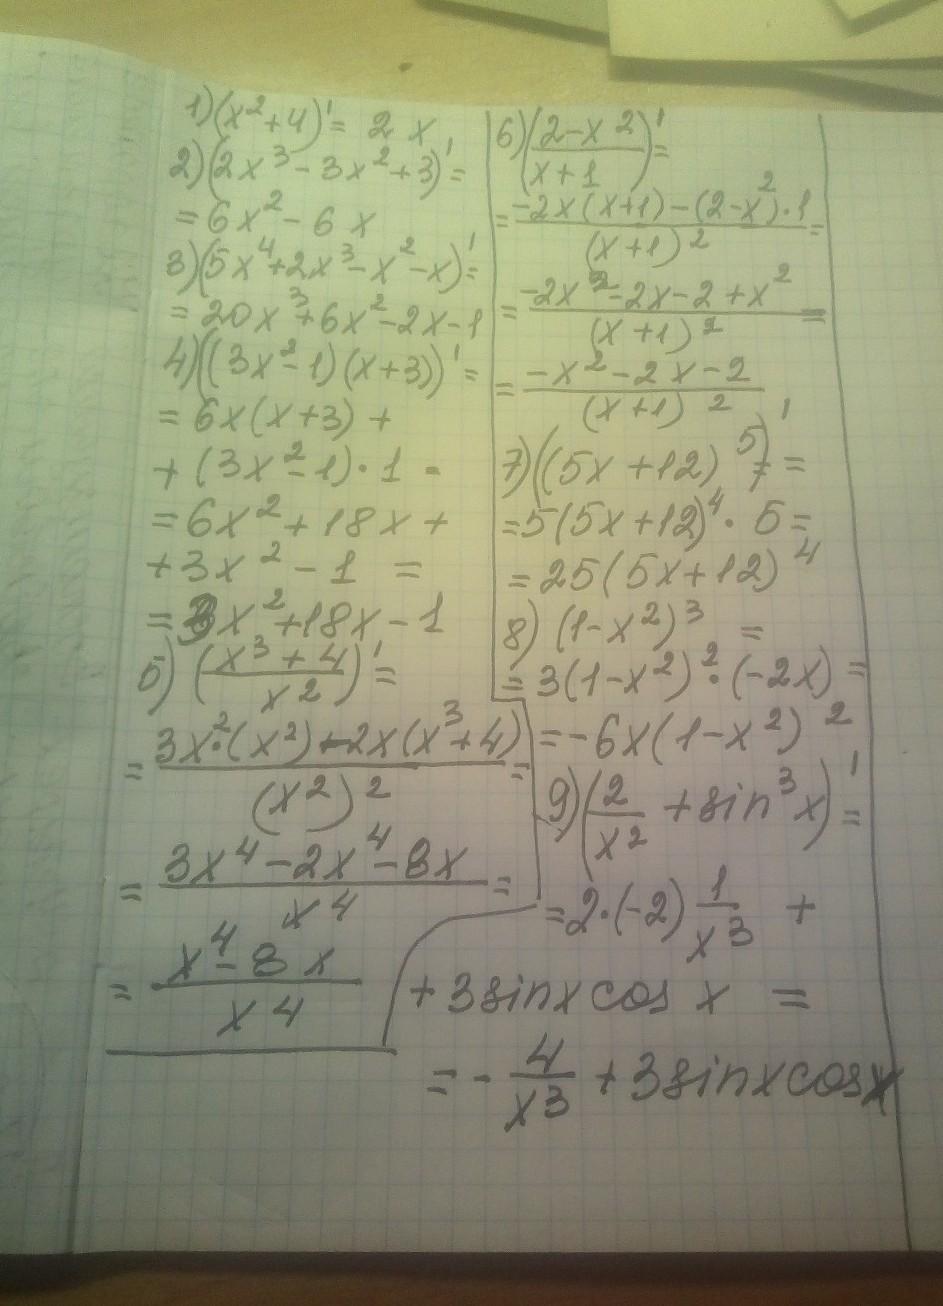 1) (x² + 4)' = 2x
2) (2x³ - 3x² + 3)' =
= 6x² - 6x
3) (5x⁴ + 2x³ - x² - x)' =
= 20x³ + 6x² - 2x - 1
4) ((3x² - 1)(x + 3))' =
= 6x(x + 3) +
+ (3x² - 1) · 1 =
= 6x² + 18x +
+ 3x² - 1 =
= x² + 18x - 1
5) ((x³ + 4)/x²)' =
= (3x² · (x²) - 2x(x³ + 4))/(x²)² =
= (3x⁴ - 2x⁴ - 8x)/x⁴ =
= (x⁴ - 8x)/x⁴
6) ((2 - x²)/(x + 1))' =
= (-2x(x + 1) - (2 - x²) · 1)/(x + 1)² =
= (-2x² - 2x - 2 + x²)/(x + 1)² =
= (-x² - 2x - 2)/(x + 1)²
7) ((5x + 12)⁵)' =
= 5(5x + 12)⁴ · 5 =
= 25(5x + 12)⁴
8) (1 - x²)³ =
= 3(1 - x²)² · (-2x) =
= -6x(1 - x²)²
9) (2/x² + sin³x)' =
= 2 · (-2) 1/x³ +
+ 3 sin x cos x =
= - 4/x³ + 3 sin x cos x